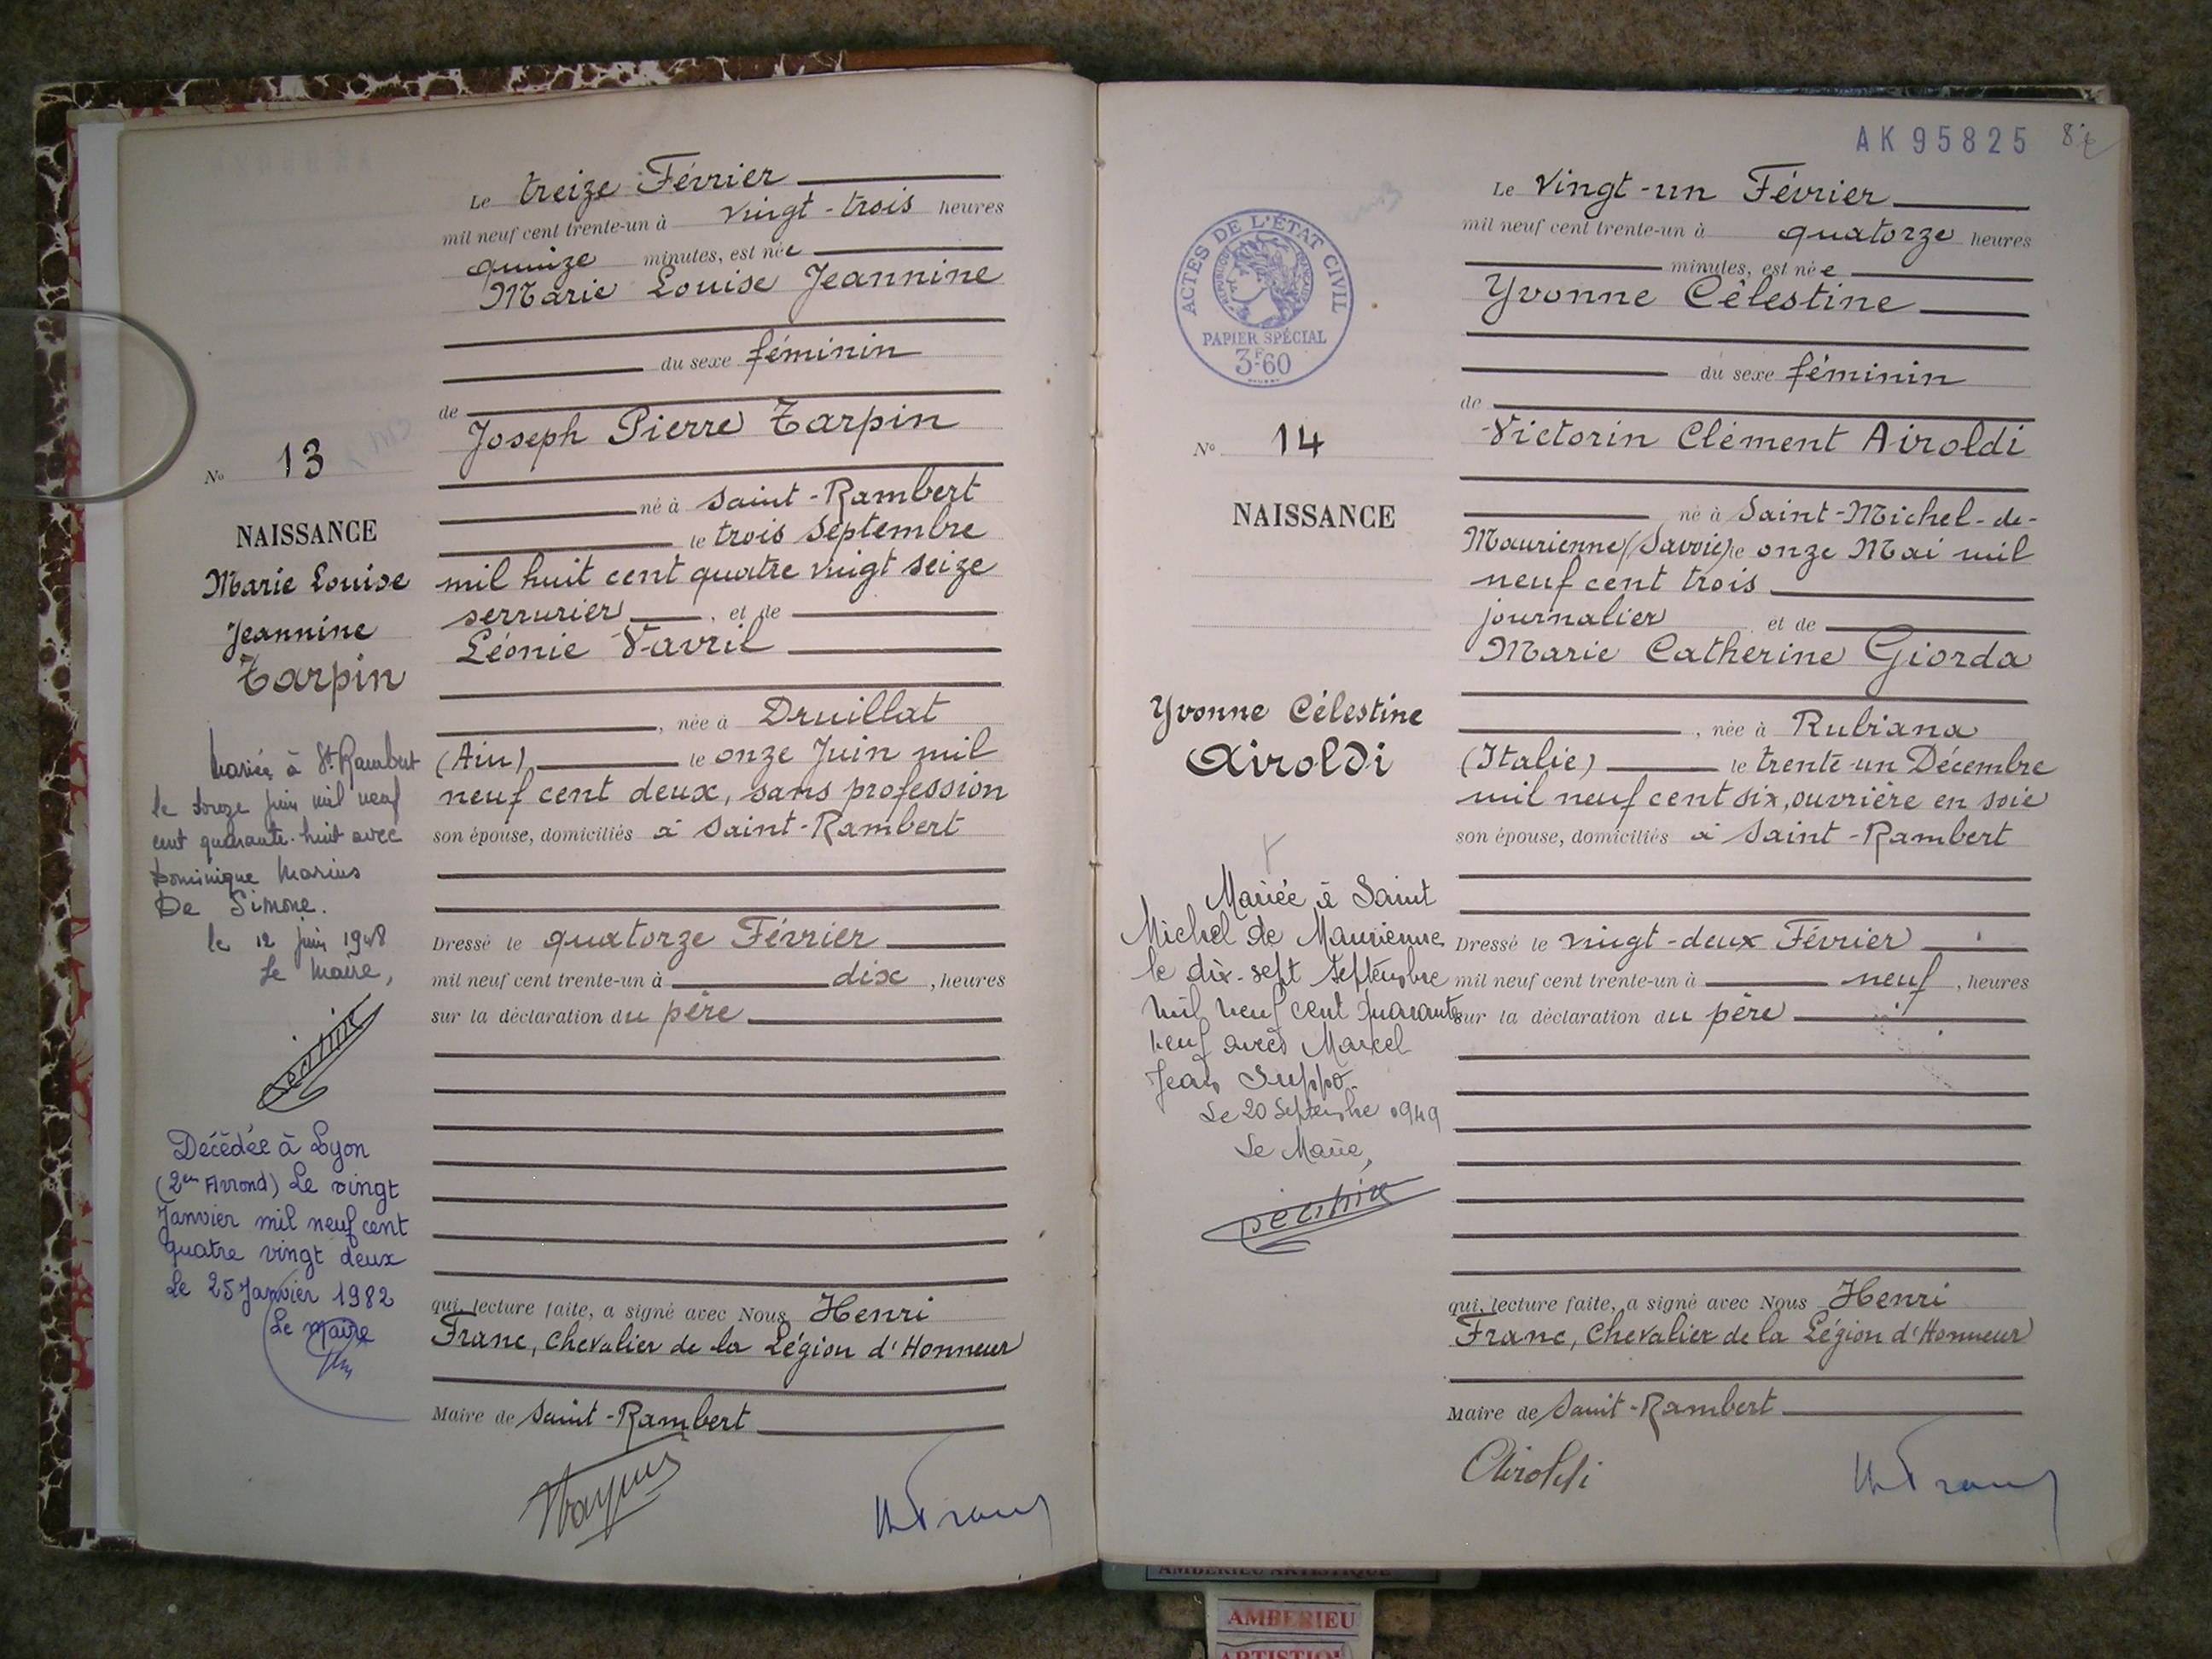 Le treize Février
mil neuf cent trente-un à vingt-trois heures
quinze minutes, est née
Marie Louise Jeannine
du sexe féminin
de
Joseph Pierre Tarpin
né à Saint-Rambert
le trois Septembre
mil huit cent quatre vingt seize
serrurier, et de
Léonie Vavril
, née à Druillat
(Ain) le onze Juin mil
neuf cent deux, sans profession
son épouse, domiciliés à Saint-Rambert
Dressé le quatorze Février
mil neuf cent trente-un à dix, heures
sur la déclaration du père
qui, lecture faite, a signé avec Nous Henri
Franc, Chevalier de la Légion d'Honneur
Maire de Saint-Rambert
No 13
NAISSANCE
Marie Louise
Jeannine
Tarpin
Mariée à St Rambert
le douze juin mil neuf
cent quarante-huit avec
Dominique Marius
De Simone.
le 12 juin 1948
Le Maire,
Décédée à Lyon
(2em Arrond) Le vingt
Janvier mil neuf cent
quatre vingt deux
Le 25 Janvier 1982
Le Maire
AK 95825
Le Vingt-un Février
mil neuf cent trente-un à quatorze heures
minutes, est née
Yvonne Célestine
du sexe féminin
de
Victorin Clément Airoldi
né à Saint-Michel-de-
Maurienne (Savoie) le onze Mai mil
neuf cent trois
journalier et de
Marie Catherine Giorda
, née à Rubiana
(Italie) le trente-un Décembre
mil neuf cent six, ouvrière en soie
son épouse, domiciliés à Saint-Rambert
Dressé le vingt-deux Février
mil neuf cent trente-un à neuf, heures
sur la déclaration du père
qui, lecture faite, a signé avec Nous Henri
Franc, Chevalier de la Légion d'Honneur
Maire de Saint-Rambert
Airoldi
H Franc
ACTES DE L'ÉTAT CIVIL
RÉPUBLIQUE FRANÇAISE
PAPIER SPÉCIAL
3F60
No 14
NAISSANCE
Yvonne Célestine
Airoldi
Mariée à Saint
Michel de Maurienne
le dix-sept Septembre
mil neuf cent quarante
neuf avec Marcel
Jean Suppo.
Le 20 Septembre 1949
Le Maire,
AMBERIEU ARTISTIQUE
AMBERIEU
ARTISTIQU